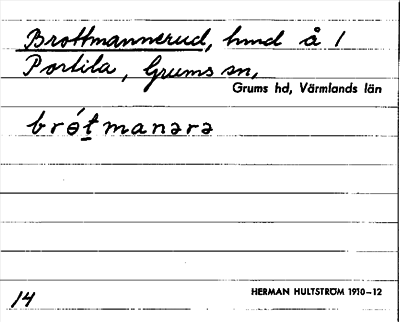 Brottmannerud, hmd å 1
Portila, Grums sn,
Grums hd, Värmlands län
brótmanərə
HERMAN HULTSTRÖM 1910–12
14